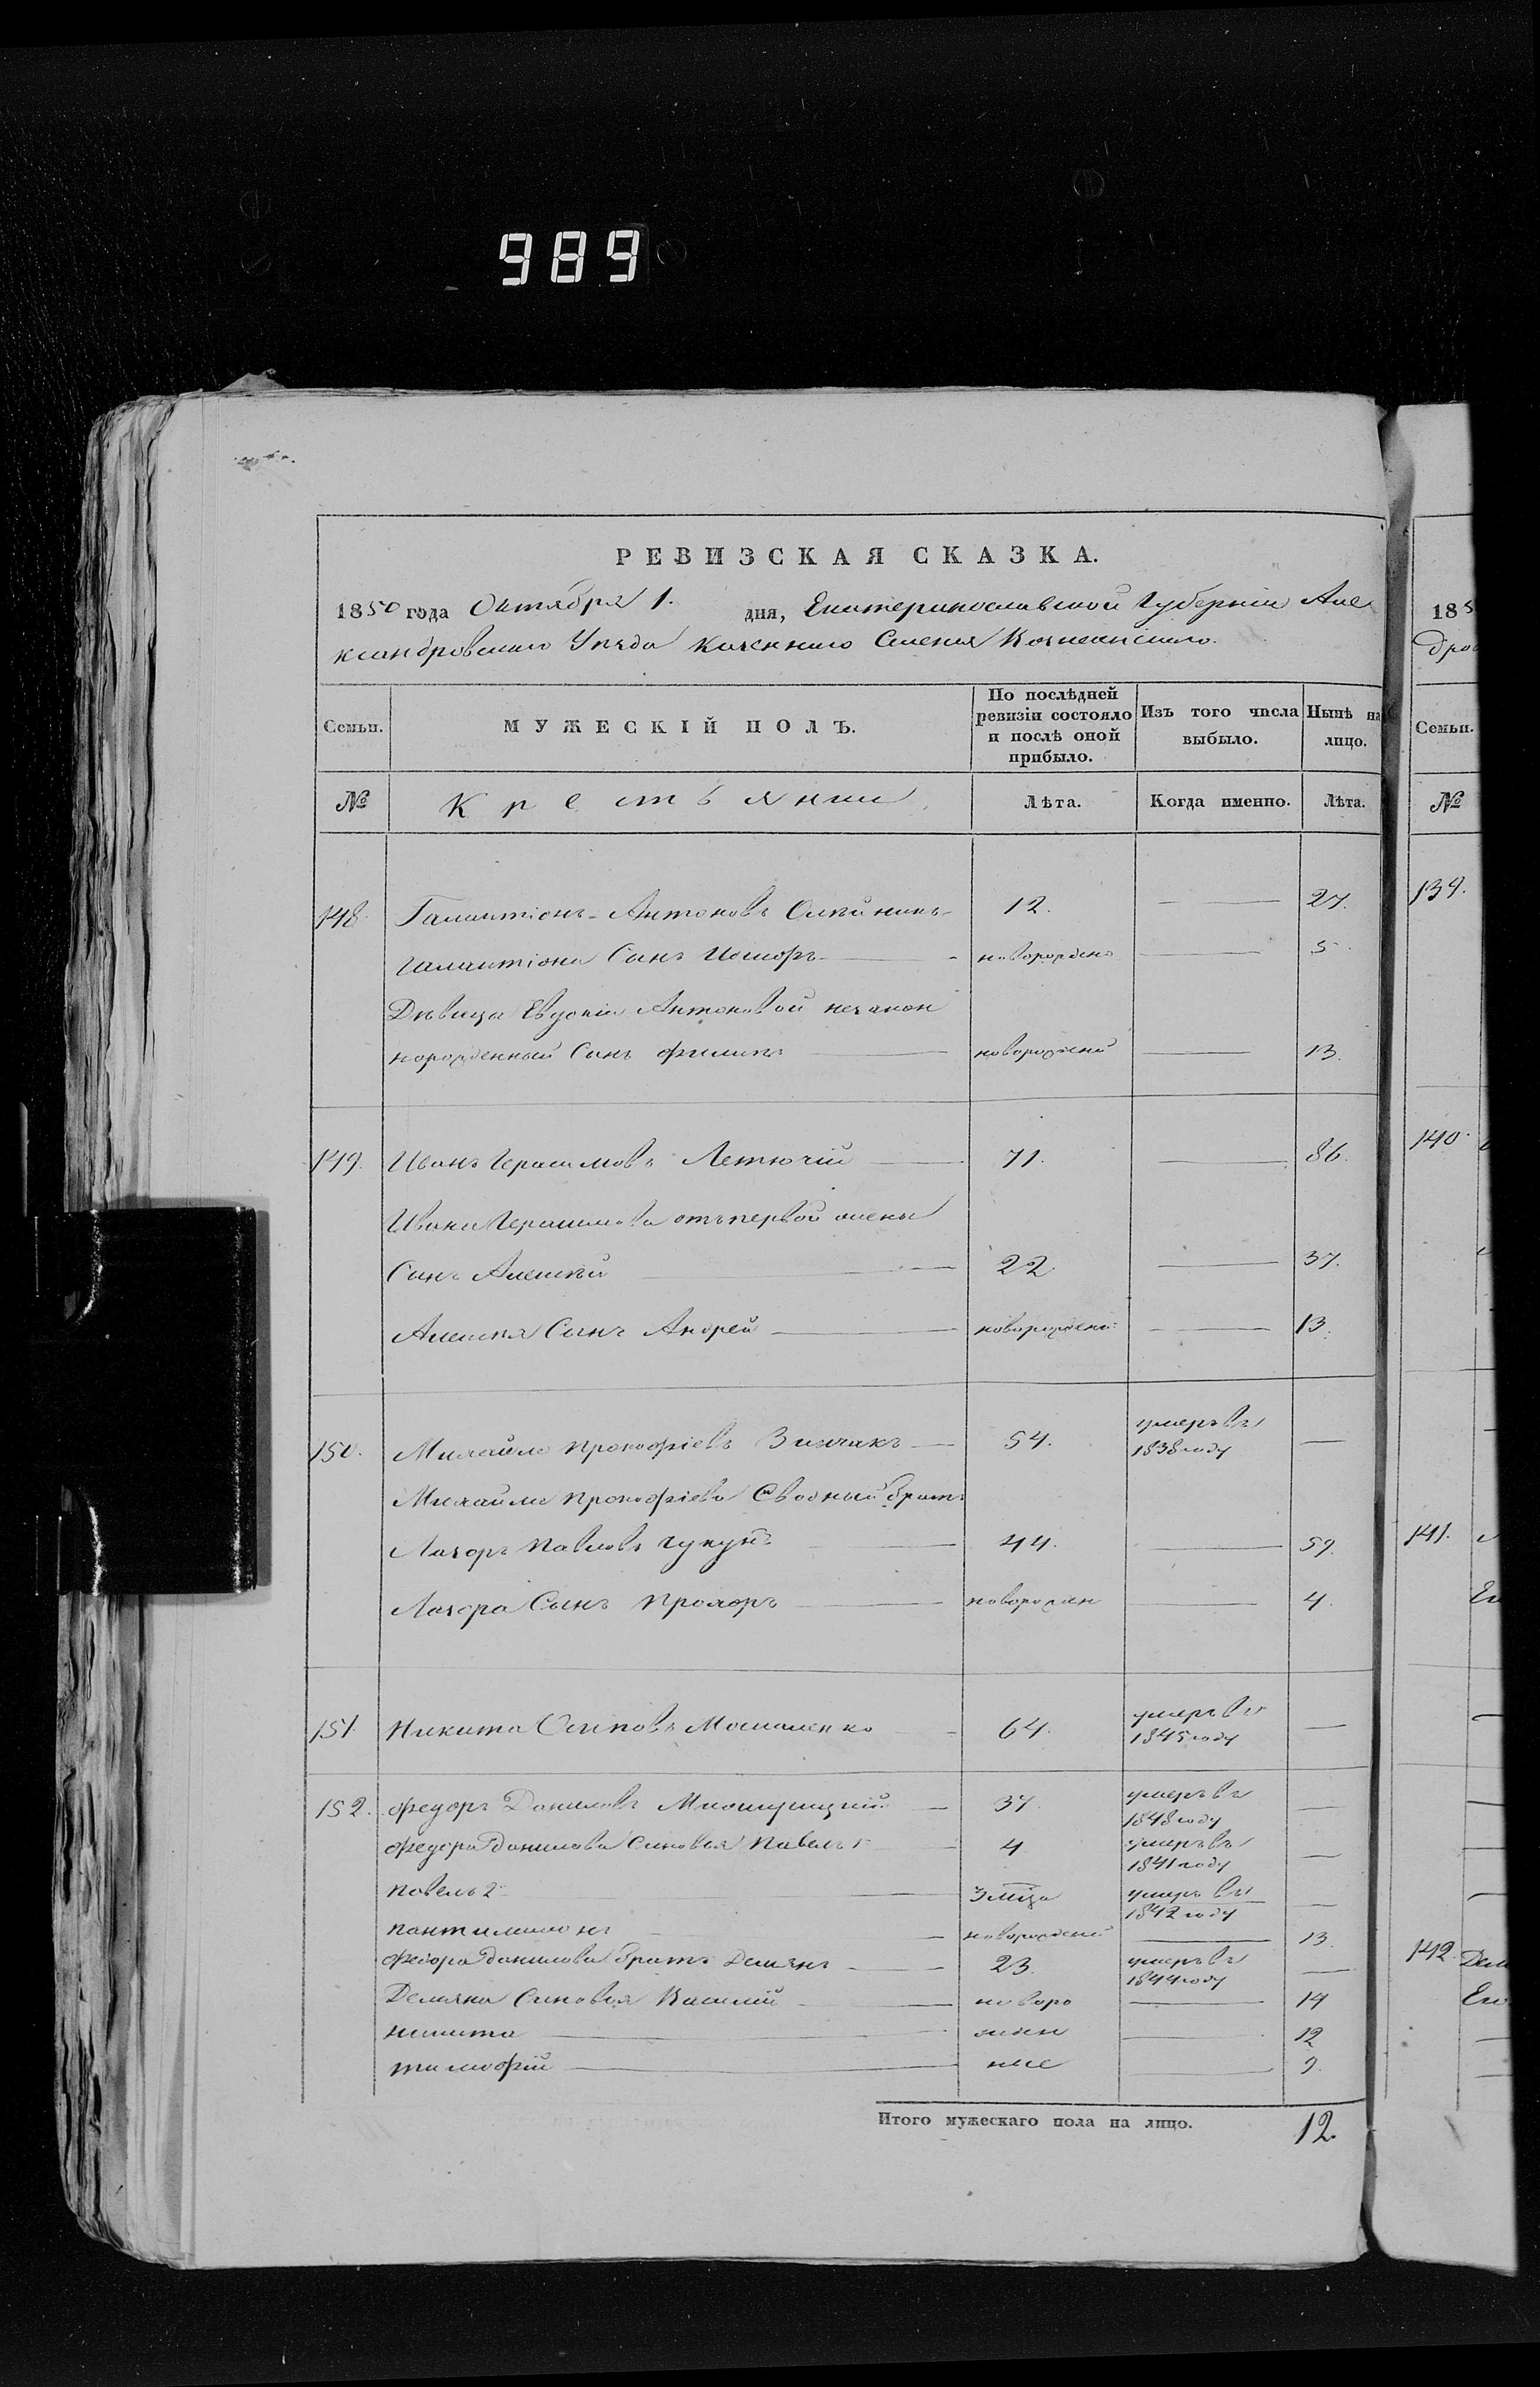 989
РЕВИЗСКАЯ СКАЗКА.
1850 года Октября 1. дня, Екатеринославской Губерніи Але
ксандровскаго Уезда казеннаго Селенія
Семьи. МУЖЕСКІЙ ПОЛЪ. По послѣдней ревизіи состояло и послѣ оной прибыло. Изъ того числа выбыло. Нынѣ на лицо.
№ Крестьянии Лѣта. Когда именно. Лѣта.
148. Галактіонъ Антоновъ Олейникъ 12. 27.
Галактіона Сынъ новорождено 5
Девица Евдокіи Антоновой незакон
норожденный Сынъ Филипъ новорожденый 13.
149. Иванъ Герасимовъ Летючій 71. 86.
Ивана Герасимова отъ первой жены
Сынъ Алексѣй 22 37.
Алексея Сынъ Андрей новорожденый 13.
150. Михайло Прокофіевъ Зинчакъ 54. умеръ въ 1838 году
Михайла Прокофіева Сводный братъ
Лазоръ Павловъ 44. 59.
Лазора Сынъ Прохоръ новорожден 4.
151 Никита Осиповъ Москаленко 64. умеръ въ 1845 году
152. Федоръ Даниловъ 37. умеръ въ 1848 году
Федора Данилова Сыновья Павелъ 1 4 умеръ въ 1841 году
Павелъ 2 3 умеръ въ 1842 году
Пантилимонъ новорожденый 13
Федора Данилова братъ Демянъ 23. умеръ въ 1844 году
Демяна Сыновья Василій новоро 14
Никита жден 12
Тимофій ные 9.
Итого мужескаго пола на лицо. 12.
185
дро
Семьи.
№
139.
140.
141.
142.